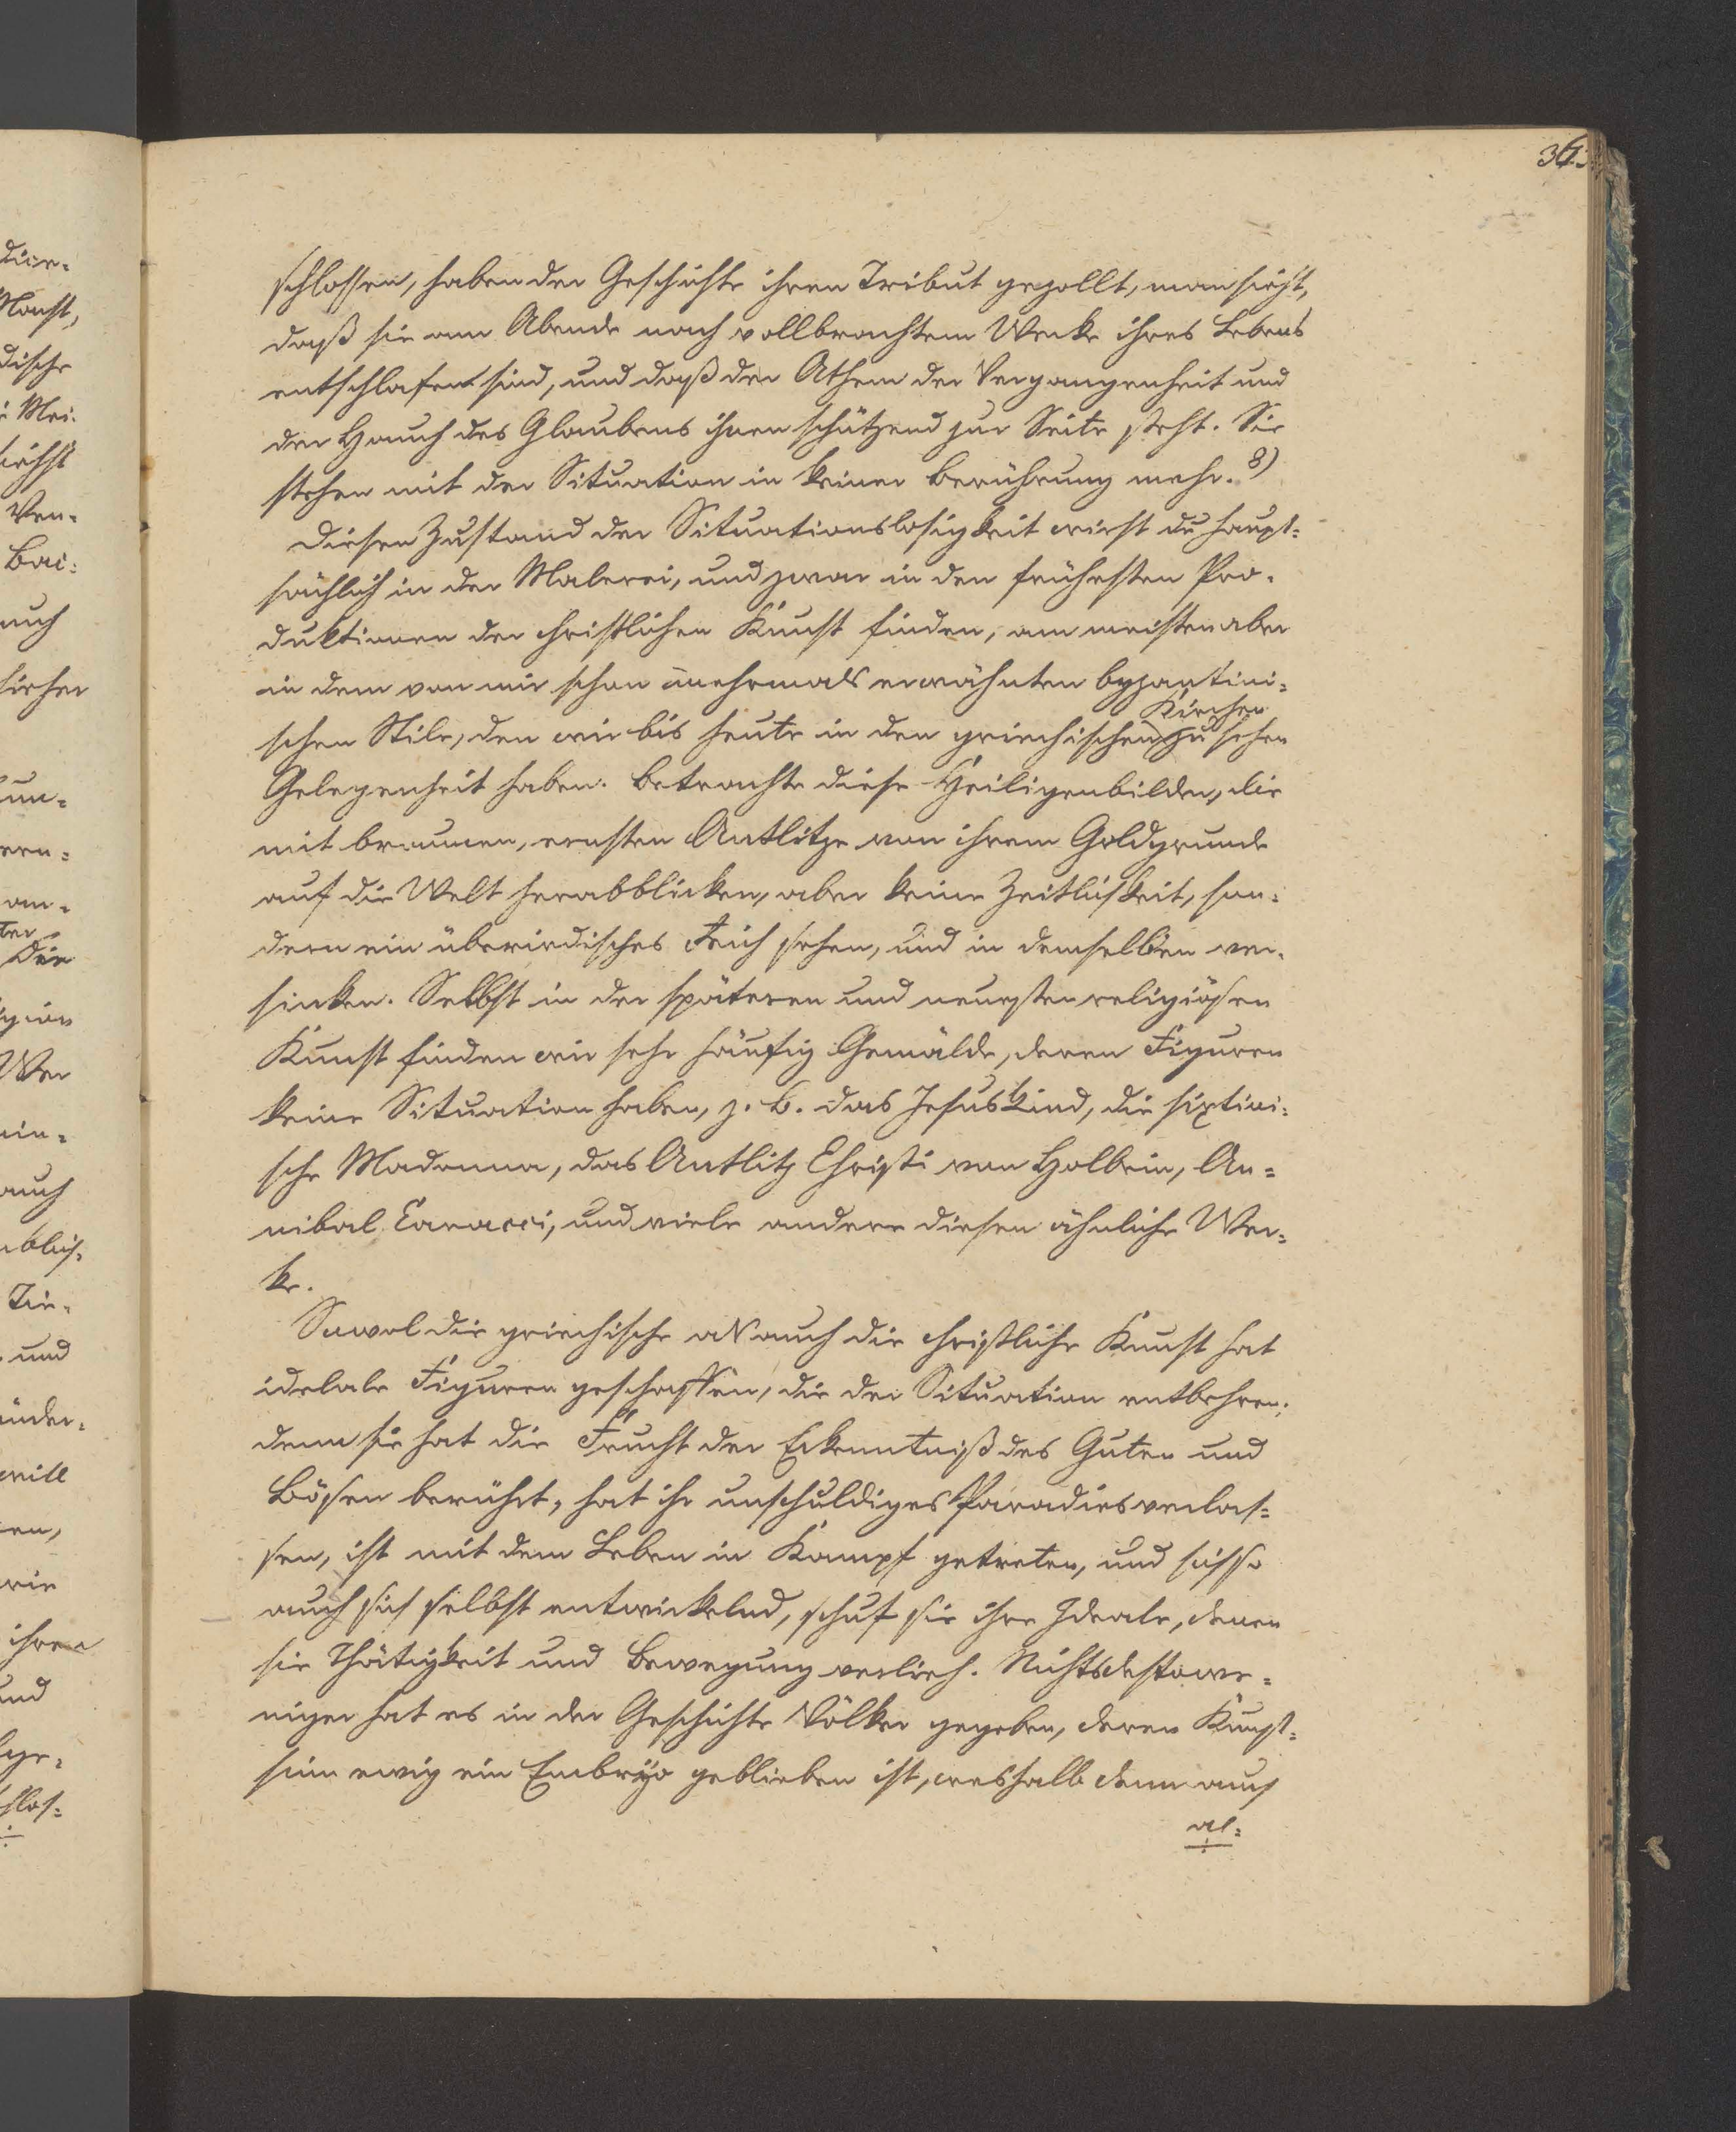 36.
schlossen, haben der Geschichte ihren Tribut gezollt, man sieht,
daß sie am Abende nach vollbrachtem Werke ihres Lebens
entschlafen sind, und daß der Athem der Vergangenheit und
der Hauch des Glaubens ihnen schützend zur Seite steht. Sie
stehen mit der Situation in keiner Berührung mehr. 8)
Diesen Zustand der Situationslosigkeit wirst du haupt=
sächlich in der Malerei, und zwar in den frühesten Pro=
duktionen der christlichen Kunst finden, am meisten aber
in dem von mir schon mehrmals erwähnten byzantini=
Kirchen
schen Stile, den wir bis heute in den griechischen zu sehen
Gelegenheit haben. Betrachte diese Heiligenbilder, die
mit braunen, ernsten Antlitze von ihrem Goldgrunde
auf die Welt herabblicken, aber keine Zeitlichkeit, son=
dern ein überirdisches Reich sehen, und in demselben ver=
sinken. Selbst in der späteren und neuesten religiösen
Kunst finden wir sehr häufig Gemälde, deren Figuren
keine Situation haben, z. B. das Jesuskind, die sixtini=
sche Madonna, das Antlitz Christi von Holbein, An=
nibal Caracci, und viele andere diesen ähnliche Wer=
ke.
Sowol die griechische als auch die christliche Kunst hat
idelale Figuren geschaffen, die der Situation entbehren;
denn sie hat die Frucht der Erkenntniß des Guten und
Bösen berührt, hat ihr unschuldiges Paradies verlas=
sen, ist mit dem Leben in Kampf getreten, und sich so
auch sich selbst entwickelnd, schuf sie ihre Ideale, denen
sie Thätigkeit und Bewegung verlieh. Nichtsdestowe=
niger hat es in der Geschichte Völker gegeben, deren Kunst=
sinn ewig ein Embryo geblieben ist, weshalb denn auch
al=